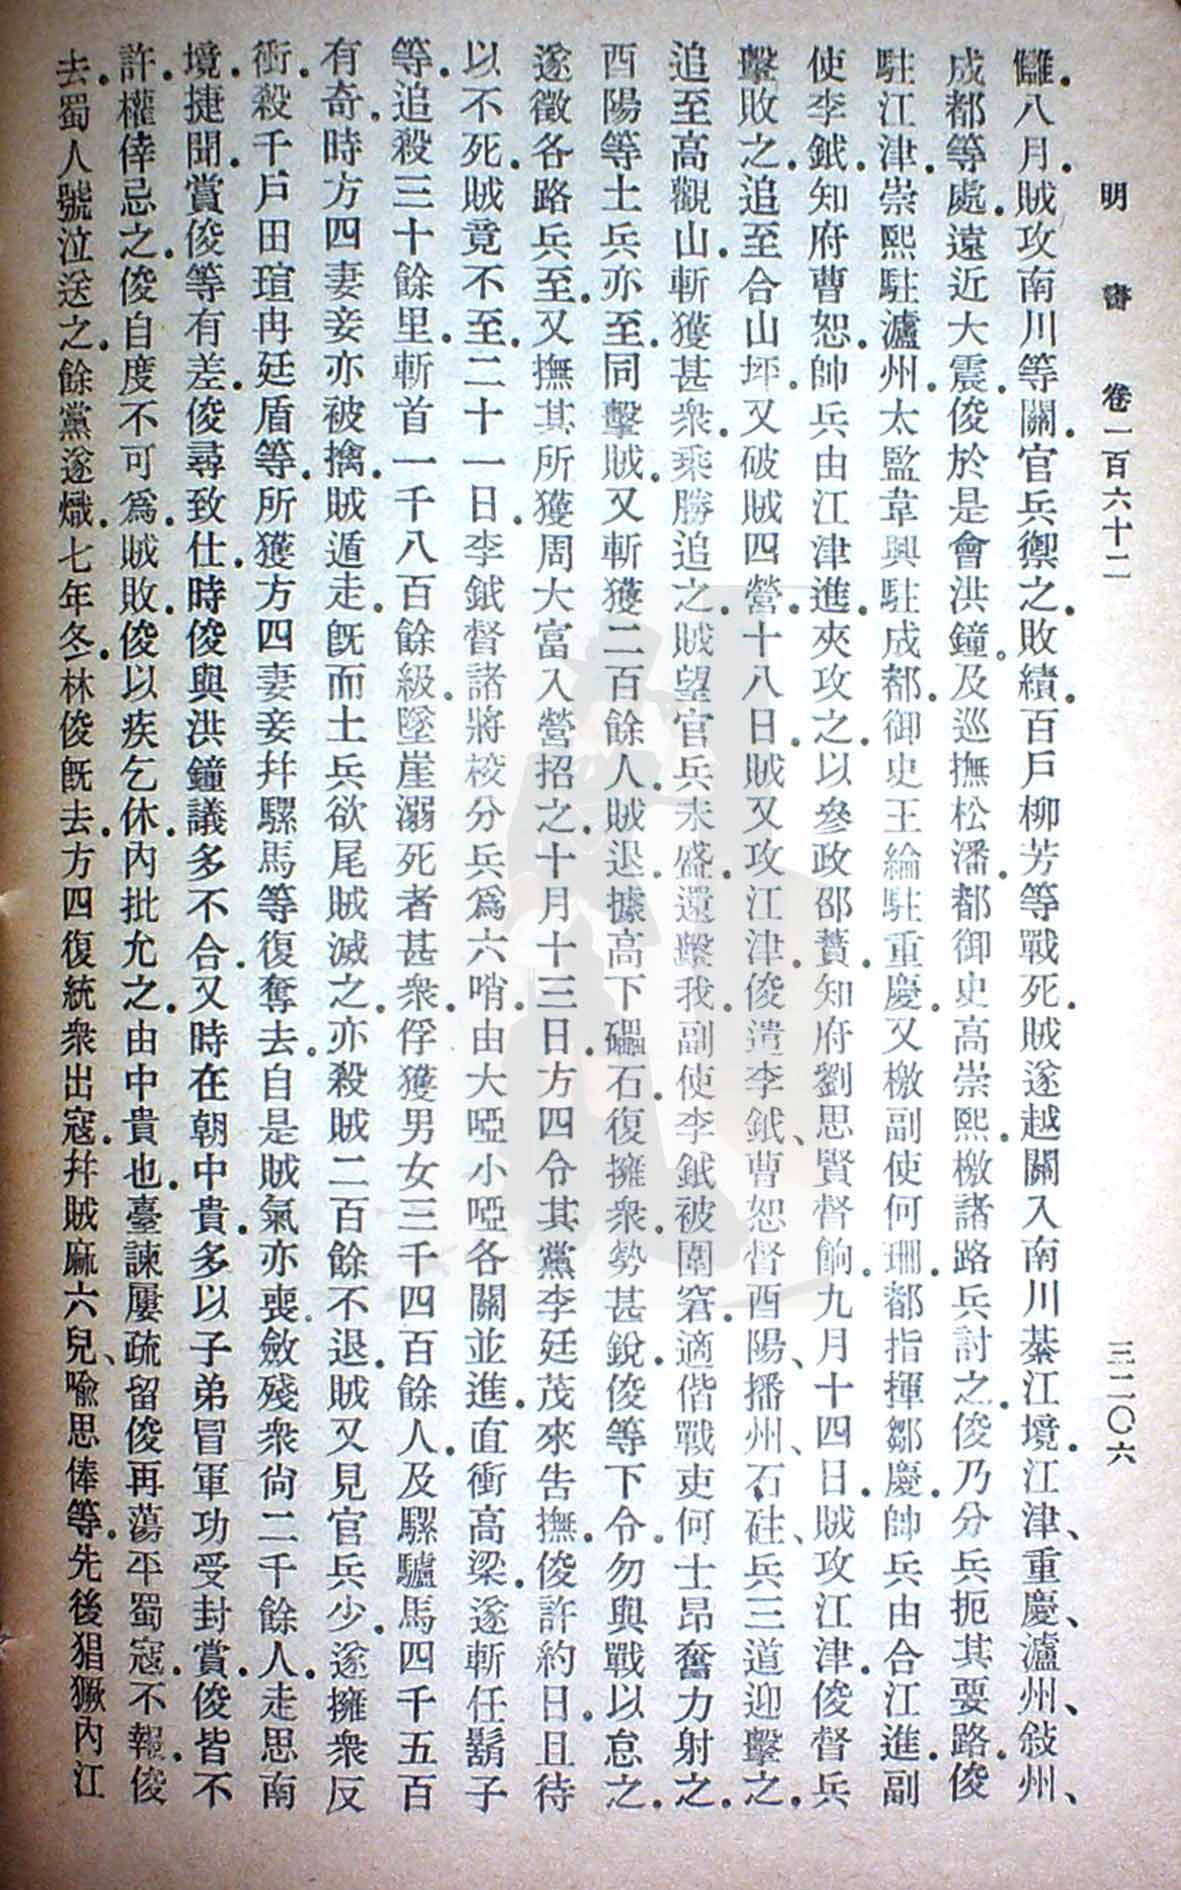 明 書 卷一百六十二 三二〇六
讎。八月。賊攻南川等關。官兵禦之。敗績。百戶柳芳等戰死。賊遂越關入南川綦江境。江津、重慶、瀘州、敍州、
成都等處。遠近大震。俊於是會洪鐘。及巡撫松潘。都御史高崇熙。檄諸路兵討之。俊乃分兵扼其要路。俊
駐江津。崇熙駐瀘州。太監韋興駐成都。御史王綸駐重慶。又檄副使何珊。都指揮鄒慶。帥兵由合江進。副
使李鉞。知府曹恕。帥兵由江津進。夾攻之。以參政邵蕡。知府劉思賢督餉。九月十四日。賊攻江津。俊督兵
擊敗之。追至合山坪。又破賊四營。十八日。賊又攻江津。俊遣李鉞、曹恕督酉陽、播州、石砫、兵三道迎擊之。
追至高觀山。斬獲甚衆。乘勝追之。賊望官兵未盛。還擊我。副使李鉞被圍窘。適偕戰吏何士昂奮力射之。
酉陽等土兵亦至。同擊賊。又斬獲二百餘人。賊退據高下礧石。復擁衆。勢甚銳。俊等下令。勿與戰以怠之。
遂徵各路兵至。又撫其所獲周大富入營招之。十月十三日。方四令其黨李廷茂來告撫。俊許約日。且待
以不死。賊竟不至。二十一日。李鉞督諸將校分兵爲六哨。由大啞小啞各關並進。直衝高梁。遂斬任鬍子
等。追殺三十餘里。斬首一千八百餘級。墜崖溺死者甚衆。俘獲男女三千四百餘人。及騾驢馬四千五百
有奇。時方四妻妾亦被擒。賊遁走。旣而土兵欲尾賊滅之。亦殺賊二百餘不退。賊又見官兵少。遂擁衆反
衝。殺千戶田瑄冉廷盾等。所獲方四妻妾幷騾馬等復奪去。自是賊氣亦喪。斂殘衆尙二千餘人。走思南
境。捷聞。賞俊等有差。俊尋致仕。時俊與洪鐘議多不合。又時在朝中貴。多以子弟冒軍功受封賞。俊皆不
許。權倖忌之。俊自度不可爲。賊敗。俊以疾乞休。內批允之。由中貴也。臺諫屢疏留俊再蕩平蜀寇。不報。俊
去。蜀人號泣送之。餘黨遂熾。七年冬。林俊旣去。方四復統衆出寇。幷賊麻六兒、喻思俸等。先後猖獗內江